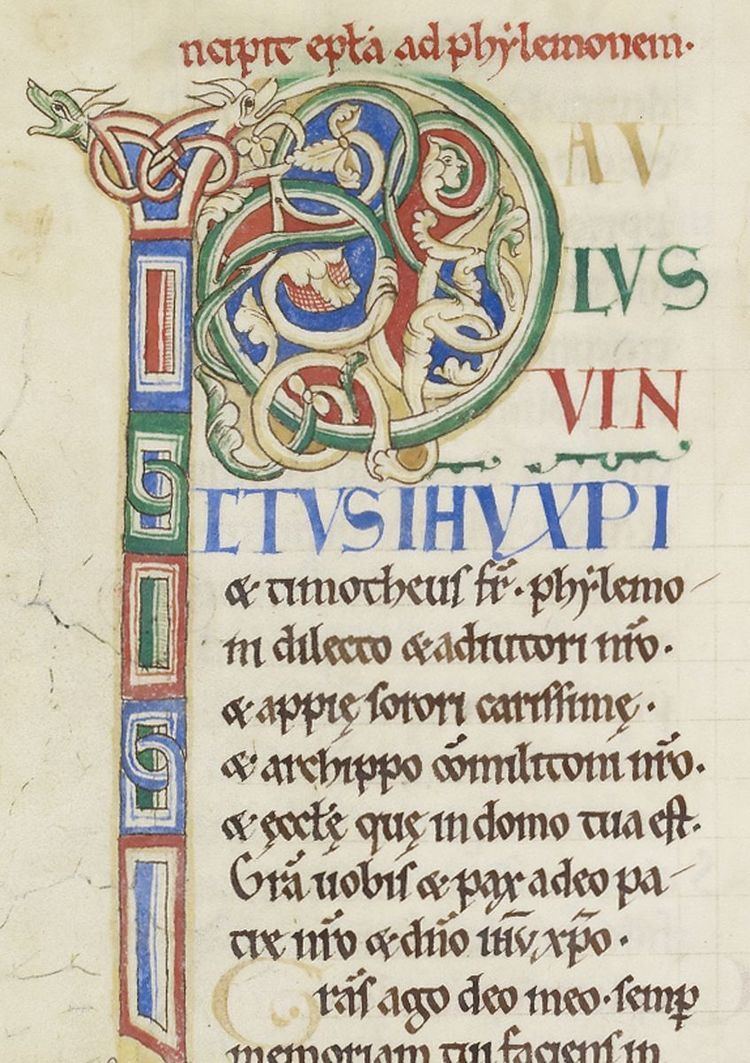 ncipit epła ad phẏlemonem·
PAV
LVS
VIN
CTVS IHV XPI
& timotheus fr̄· phẏlemo
ni dilecto & adiutori nr̄o·
& appię sorori carissimę·
& archippo cōmilitoni nr̄o·
& ęcclę quę in domo tua est·
Gr̄a uobis & pax a deo pa-
tre nr̄o & dn̄o ih̄u xp̄o·
Gr̄as ago deo meo· semp̱
memoriam tui faciens in